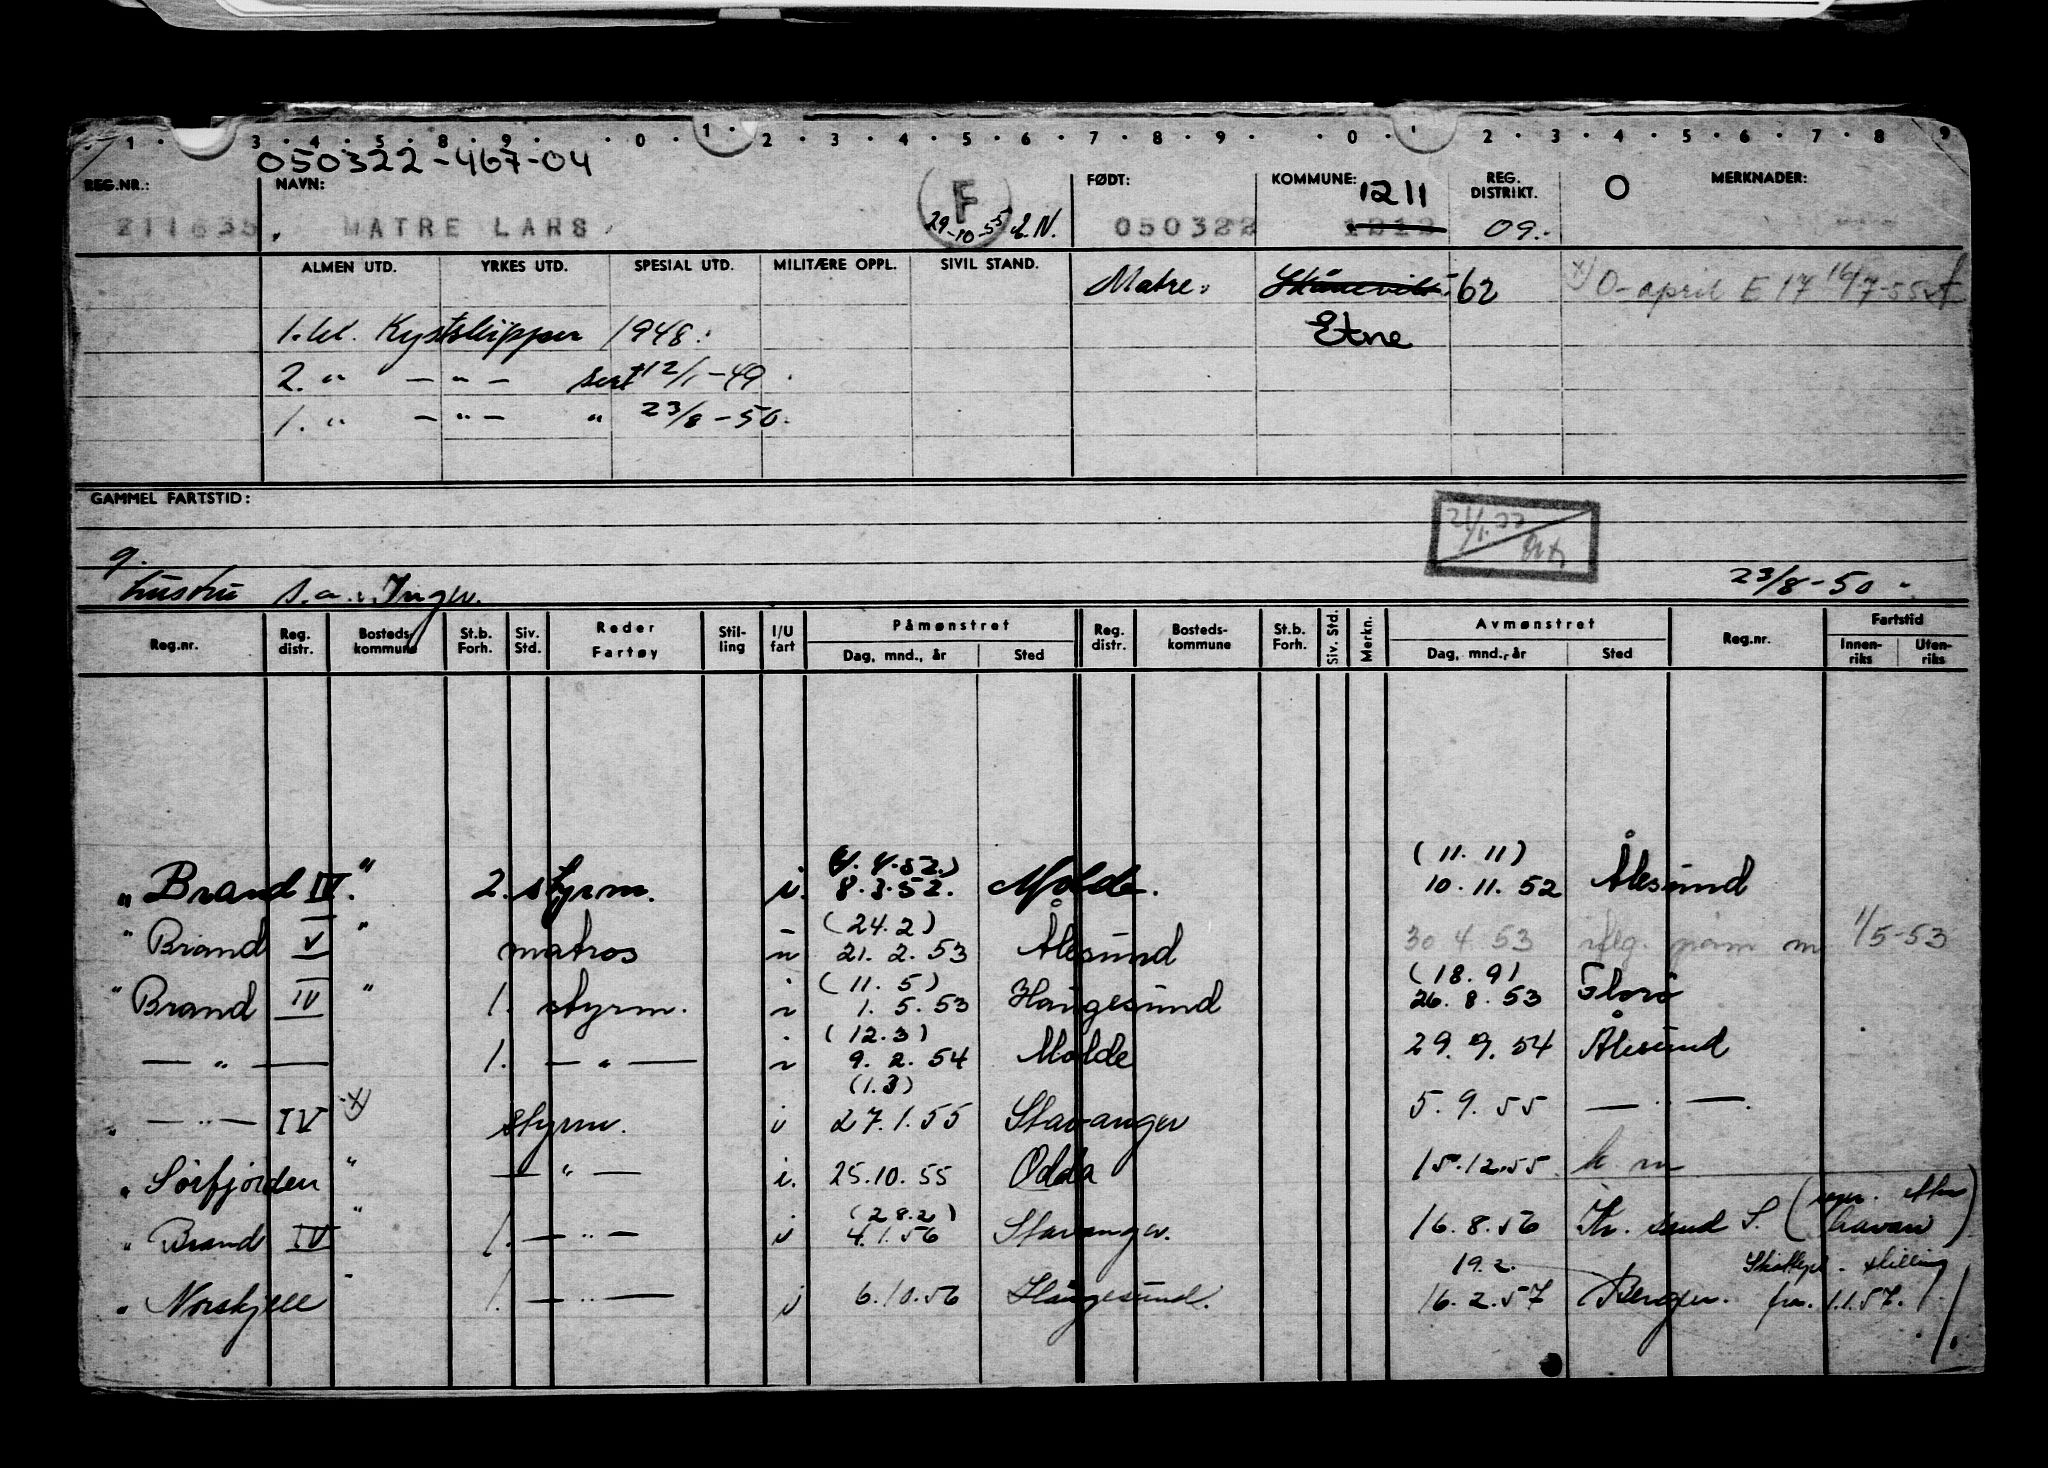 1 . 3 . 4 . 5 . 8 . 9 . . 0 . 1 . 2 . 3 . 4 . 5 . 6 . 7 . 8 . 9 . . 0 . 1 . 2 . 3 . 4 . 5 . 6 . 7 . 8 . 9
050322-467-04
REG.NR.: NAVN: F FØDT: KOMMUNE: 1211 REG. DISTRIKT. O MERKNADER:
211635 . MATRE LARS 29-10-55 E.N. 050322 1212 09.-
ALMEN UTD. YRKES UTD. SPESIAL UTD. MILITÆRE OPPL. SIVIL STAND. Matre. Skånevik 62 x) O-april E 17 16/7-55
1. kl. Kystskipper 1948. Etne
2. " — " — sert 12/1-49
1. " — " — " 23/8-50.
GAMMEL FARTSTID:
g.
hustru s.a. Inger. 23/8-50
Reg.nr. Reg. distr. Bosteds-kommune St.b. Forh. Siv. Std. Reder Fartøy Stil-ling I/U fart Påmønstret Dag, mnd., år Sted Reg. distr. Bosteds-kommune St.b. Forh. Siv. Std. Merkn. Avmønstret Dag, mnd., år Sted Reg.nr. Fartstid Innen-riks Uten-riks
(4.4.52.) (11.11)
" Brand IV. " 2. styrm. i. 8.3.52. Molde. 10.11.52 Ålesund
(24.2)
" Brand V " matros 21.2.53 Ålesund 30 4.53 m 1/5-53
(11.5) (18.9)
" Brand IV " 1. styrm. i 1.5.53 Haugesund 26.8.53 Florø
(12.3)
— " — 1. — " — i 9.2.54 Molde 29.9.54 Ålesund
(1.3)
" — " — IV x) styrm. i 27.1.55 Stavanger 5.9.55 — " —
" Sørfjorden " — " — i. 25.10.55 Odda 15.12.55 h m
(28.2)
" Brand IV " 1. — " — i 4.1.56 Stavanger. 16.8.56 Kr. sund S. (repr. etter havari)
19.2. stilling
" Norskjell " 1. — " — i 6.10.56 Haugesund. 16.2.57 Bergen. fra 1.1.57.